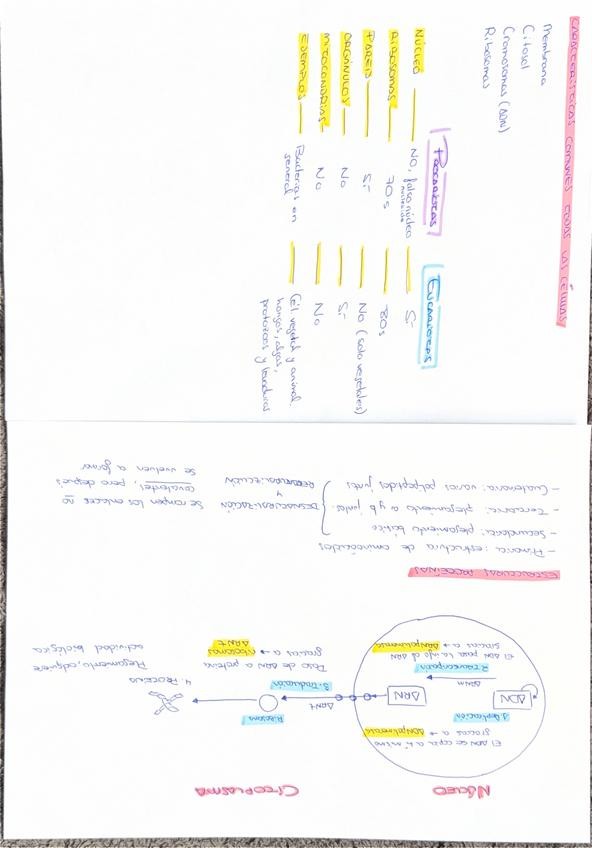 CARACTERÍSTICAS COMUNES TODAS LAS CÉLULAS
Membrana
Citosol
Cromosomas (ADN)
Ribosomas
PROCARIOTAS
EUCARIOTAS
NÚCLEO — NO, falso núcleo nucleoide — Si
RIBOSOMAS — 70s — 80s
PARED — Si — NO (solo vegetales)
ORGÁNULOS — No — Si
MITOCONDRIAS — No — No
EJEMPLOS — Bacterias en general — Cél. vegetal y animal.
hongos, algas,
protozoos y levaduras
NÚCLEO
CITOPLASMA
El ADN se copia a si mismo
gracias a → ADNpolimerasa
1. Replicación
ADN
ARNm
2. Transcripción
El ADN pasa la info al ARN
gracias a → ARNpolimerasa
ARN
ARNt
Ribosoma
3. Traducción
Paso de ARN a proteína
gracias a → ribosomas
ARNt
4. PROTEÍNA
Plegamiento, adquiere
actividad biológica
ESTRUCTURAS PROTEÍNAS
- Primaria: estructura de aminoácidos
- Secundaria: plegamiento básico
- Terciaria: plegamiento a y b juntos
- Cuaternaria: varios polipeptidos juntos
DESNATURALIZACIÓN
Y
RENATURALIZACIÓN
Se rompen los enlaces no
covalentes, pero después
se vuelven a formar